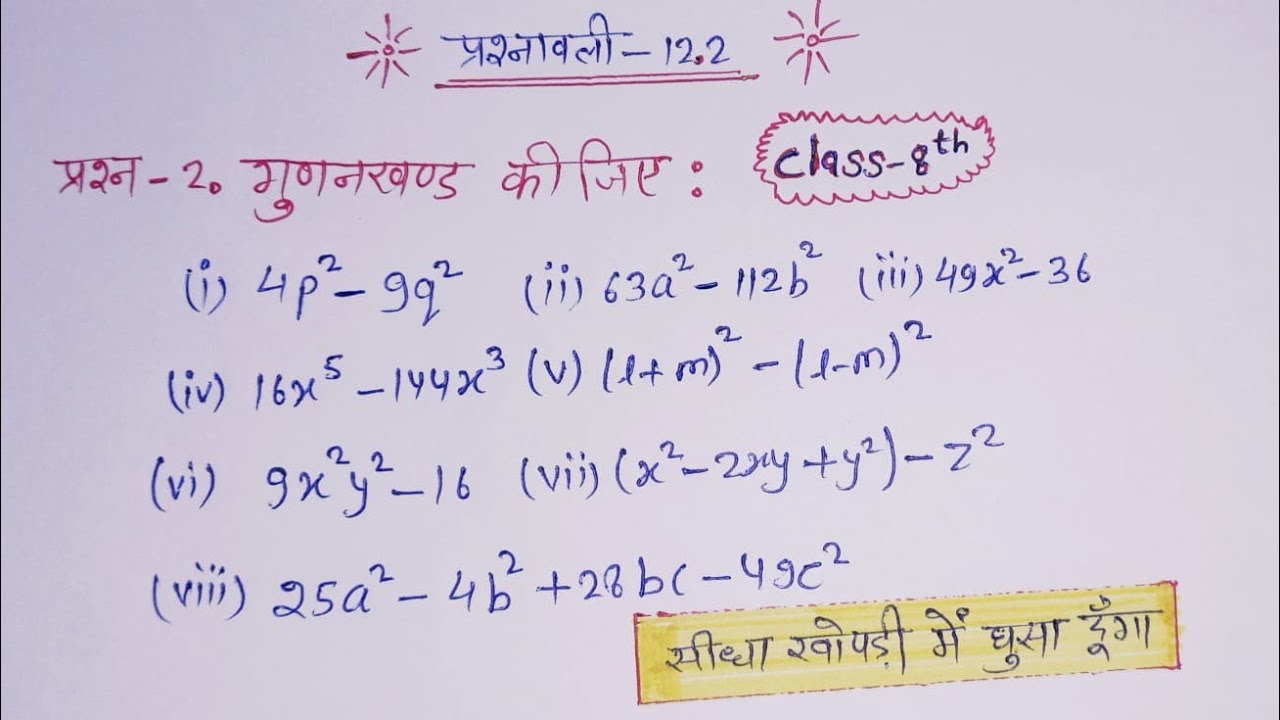 प्रश्नावली - 12.2
प्रश्न - 2. गुणनखण्ड कीजिए : class-8th
(i) 4p² - 9q² (ii) 63a² - 112b² (iii) 49x² - 36
(iv) 16x⁵ - 144x³ (v) (l+m)² - (l-m)²
(vi) 9x²y² - 16 (vii) (x² - 2xy + y²) - z²
(viii) 25a² - 4b² + 28bc - 49c²
सीधा खोपड़ी में घुसा दूँगा